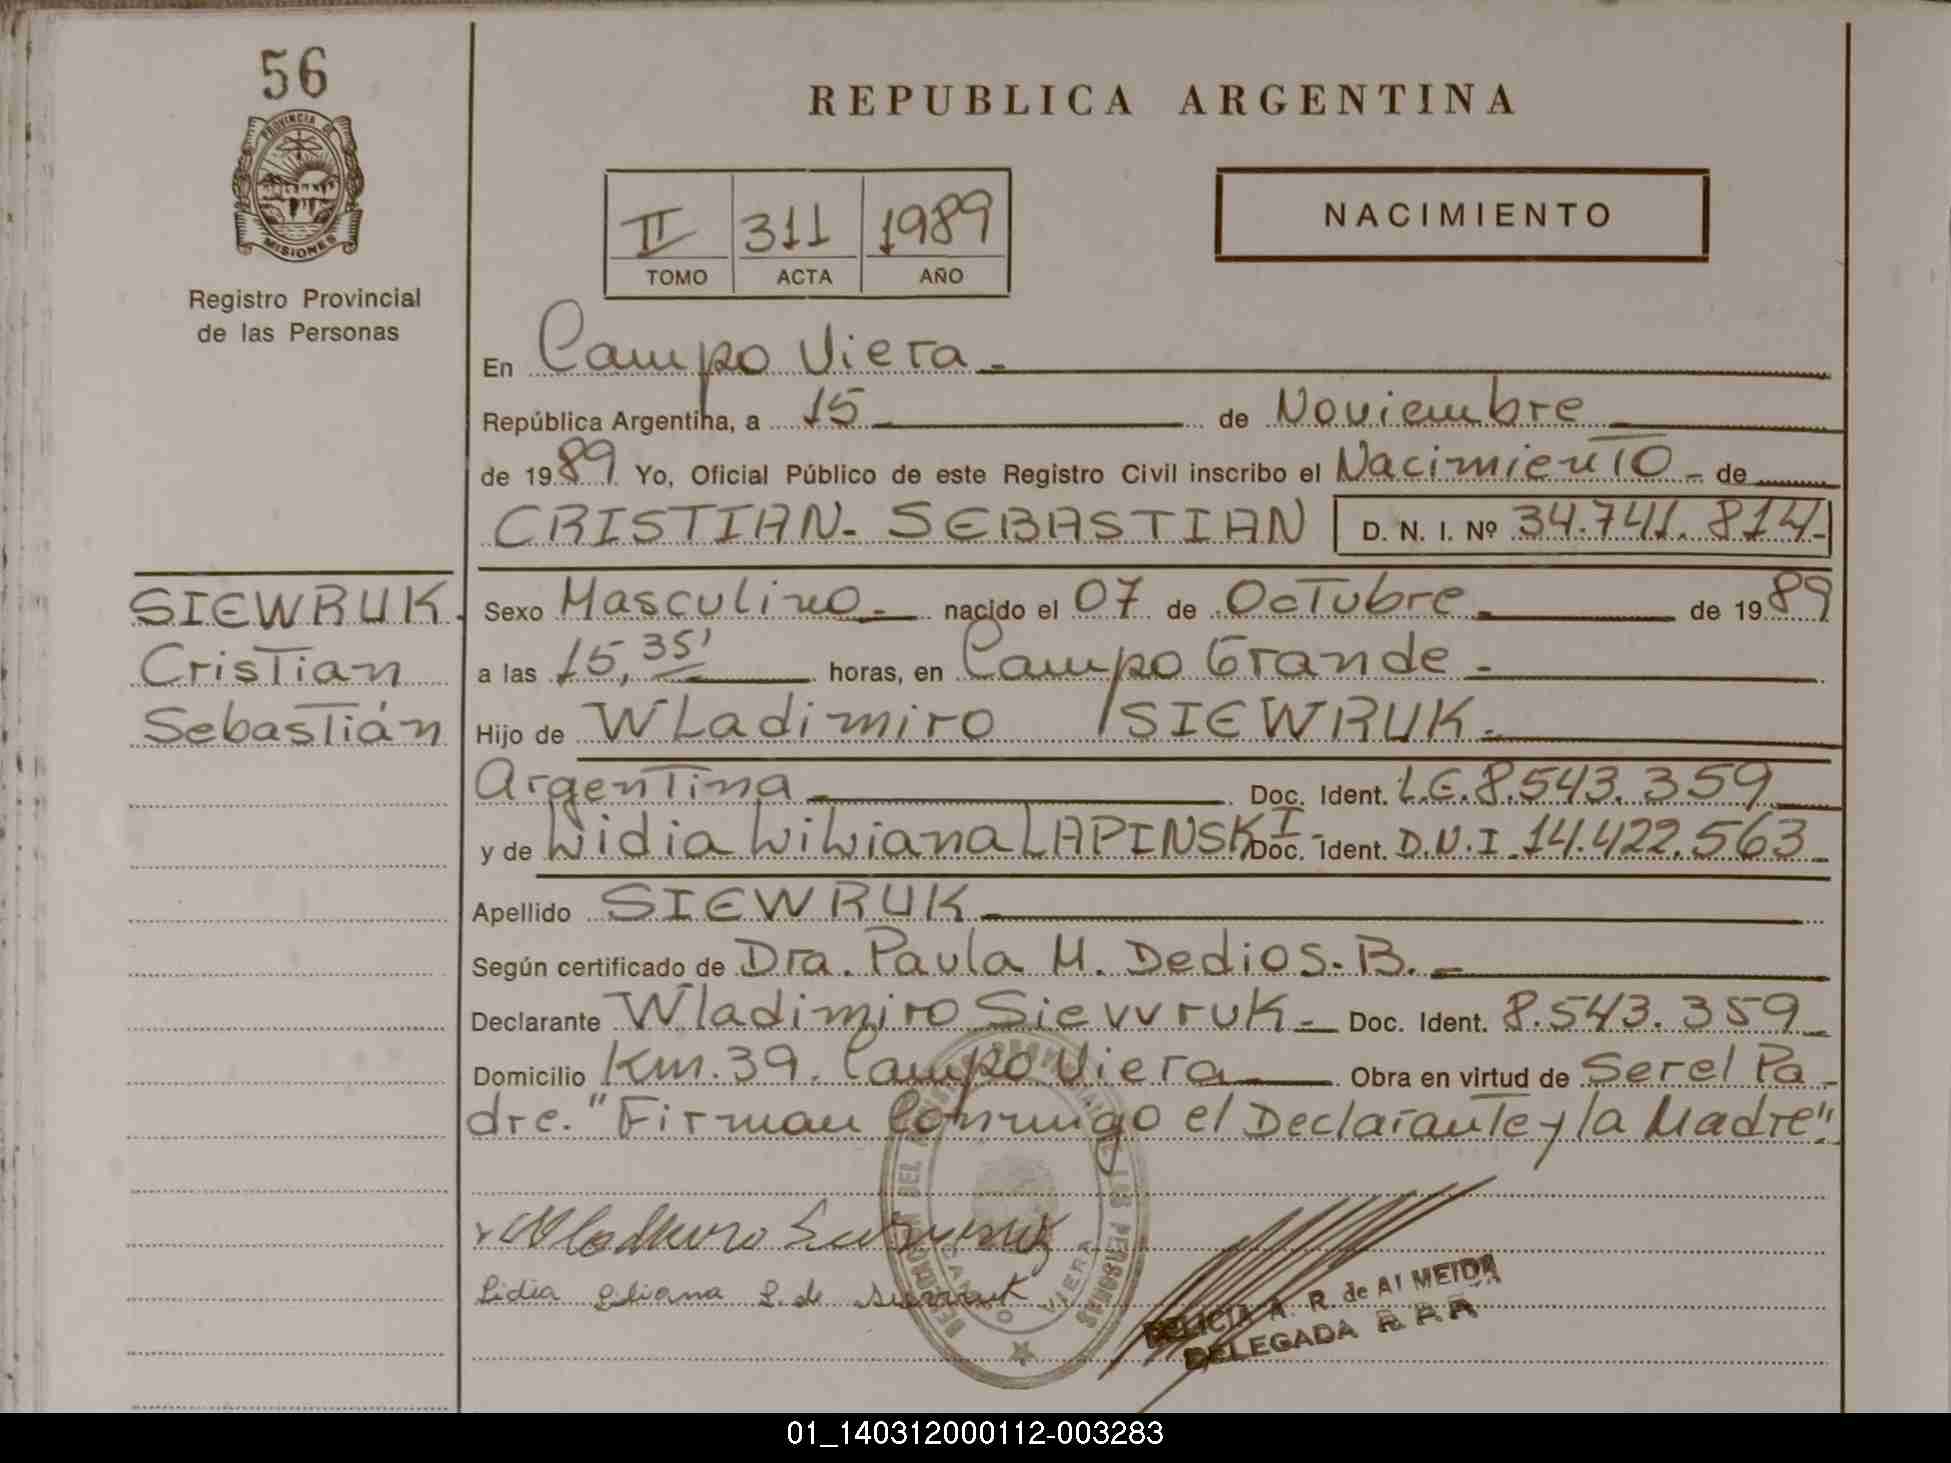 56
PROVINCIA DE
MISIONES
Registro Provincial
de las Personas
SIEWRUK.
Cristian
Sebastián
REPUBLICA ARGENTINA
II 311 1989
TOMO ACTA AÑO
NACIMIENTO
En Campo Viera.-
República Argentina, a 15 de Noviembre
de 1989 Yo, Oficial Público de este Registro Civil inscribo el Nacimiento - de
CRISTIAN- SEBASTIAN D. N. I. Nº 34.741.814-
Sexo Masculino.- nacido el 07 de Octubre. de 1989
a las 15,35' horas, en Campo Grande -
Hijo de Wladimiro SIEWRUK.-
Argentina Doc. Ident. L.E.8.543.359
y de Lidia Liliana LAPINSKI- Doc. Ident. D.N.I. 14.422.563
Apellido SIEWRUK-
Según certificado de Dra. Paula M. Dedios. B.-
Declarante Wladimiro Siewruk- Doc. Ident. 8.543.359
Domicilio Km. 39. Campo Viera Obra en virtud de Ser el Pa-
dre. "Firman Conmigo el Declarante y la Madre".
Lidia Liliana L. de Siewruk
DELICIA A. R. de ALMEIDA
DELEGADA R. P. P.
01_140312000112-003283